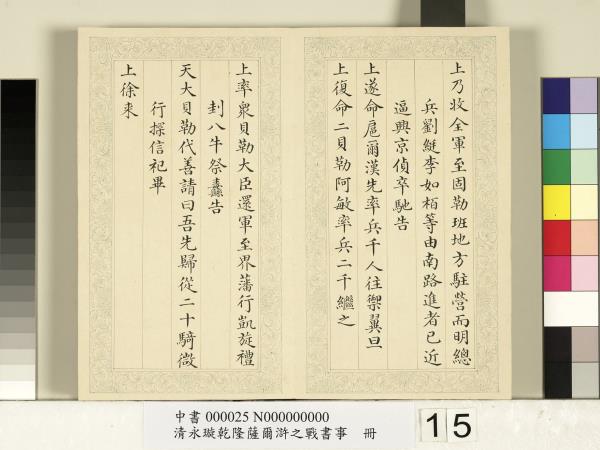 上乃收全軍至固勒班地方駐營而明總
兵劉綎李如栢等由南路進者已近
逼興京偵卒馳告
上遂命扈爾漢先率兵千人往禦翼旦
上復命二貝勒阿敏率兵二千繼之
上率衆貝勒大臣還軍至界藩行凱旋禮
刲八牛祭纛告
天大貝勒代善請曰吾先歸從二十騎微
行探信祀畢
上徐來
中書 000025 N000000000
清永璇乾隆薩爾滸之戰書事 冊
15